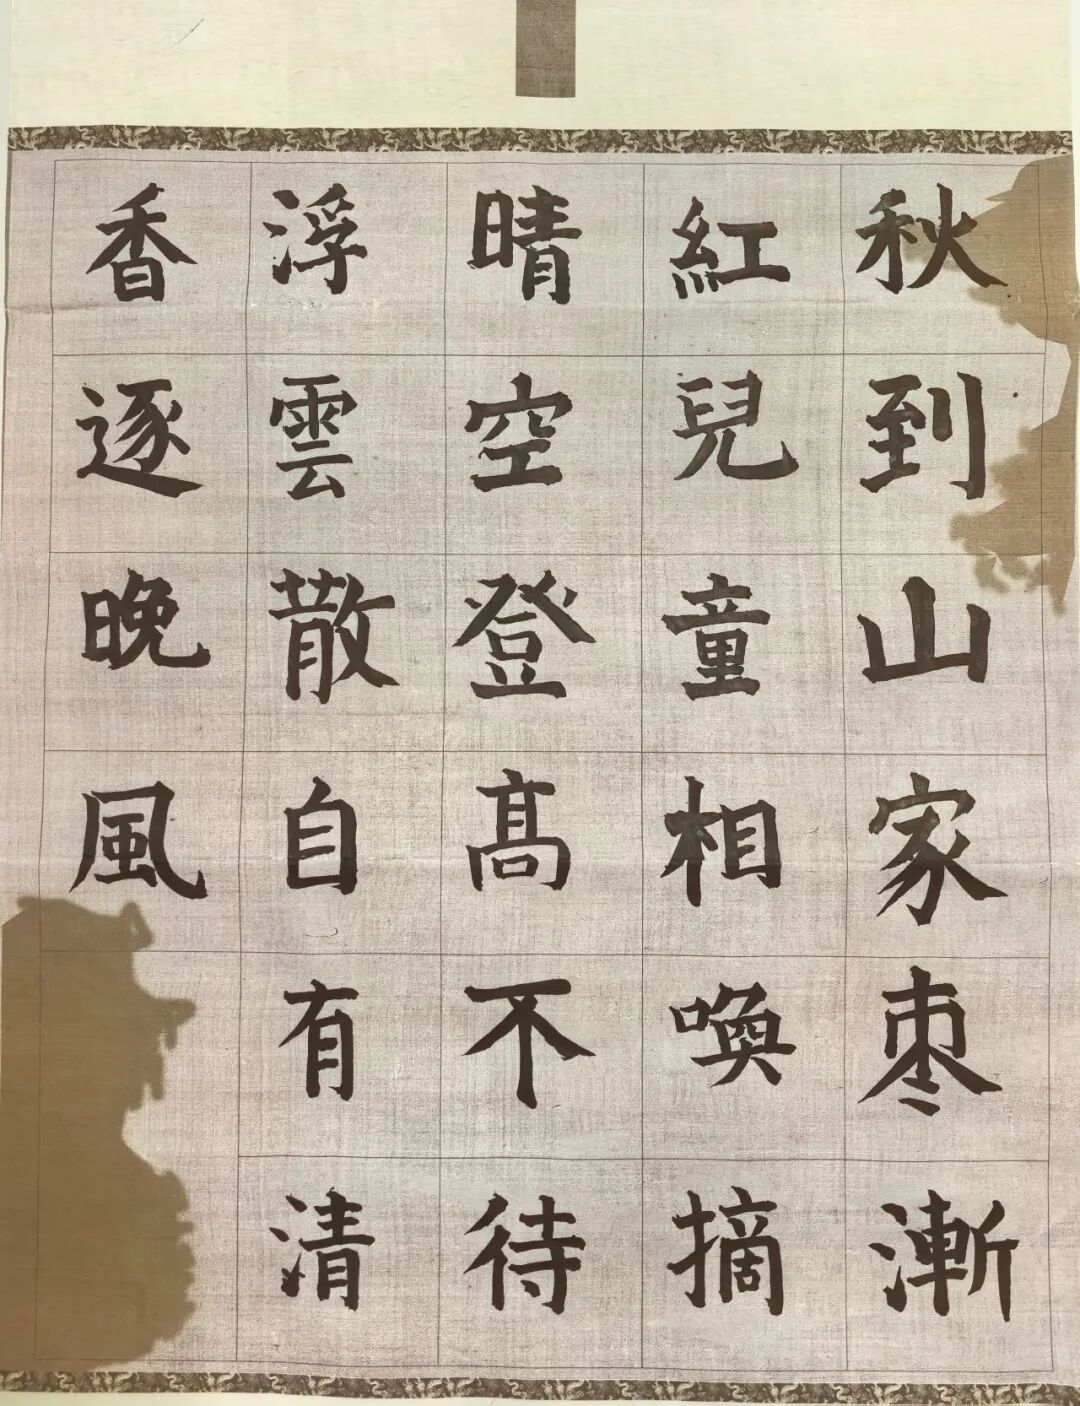 秋到山家枣漸
紅兒童相喚摘
晴空登高不待
浮雲散自有清
香逐晚風